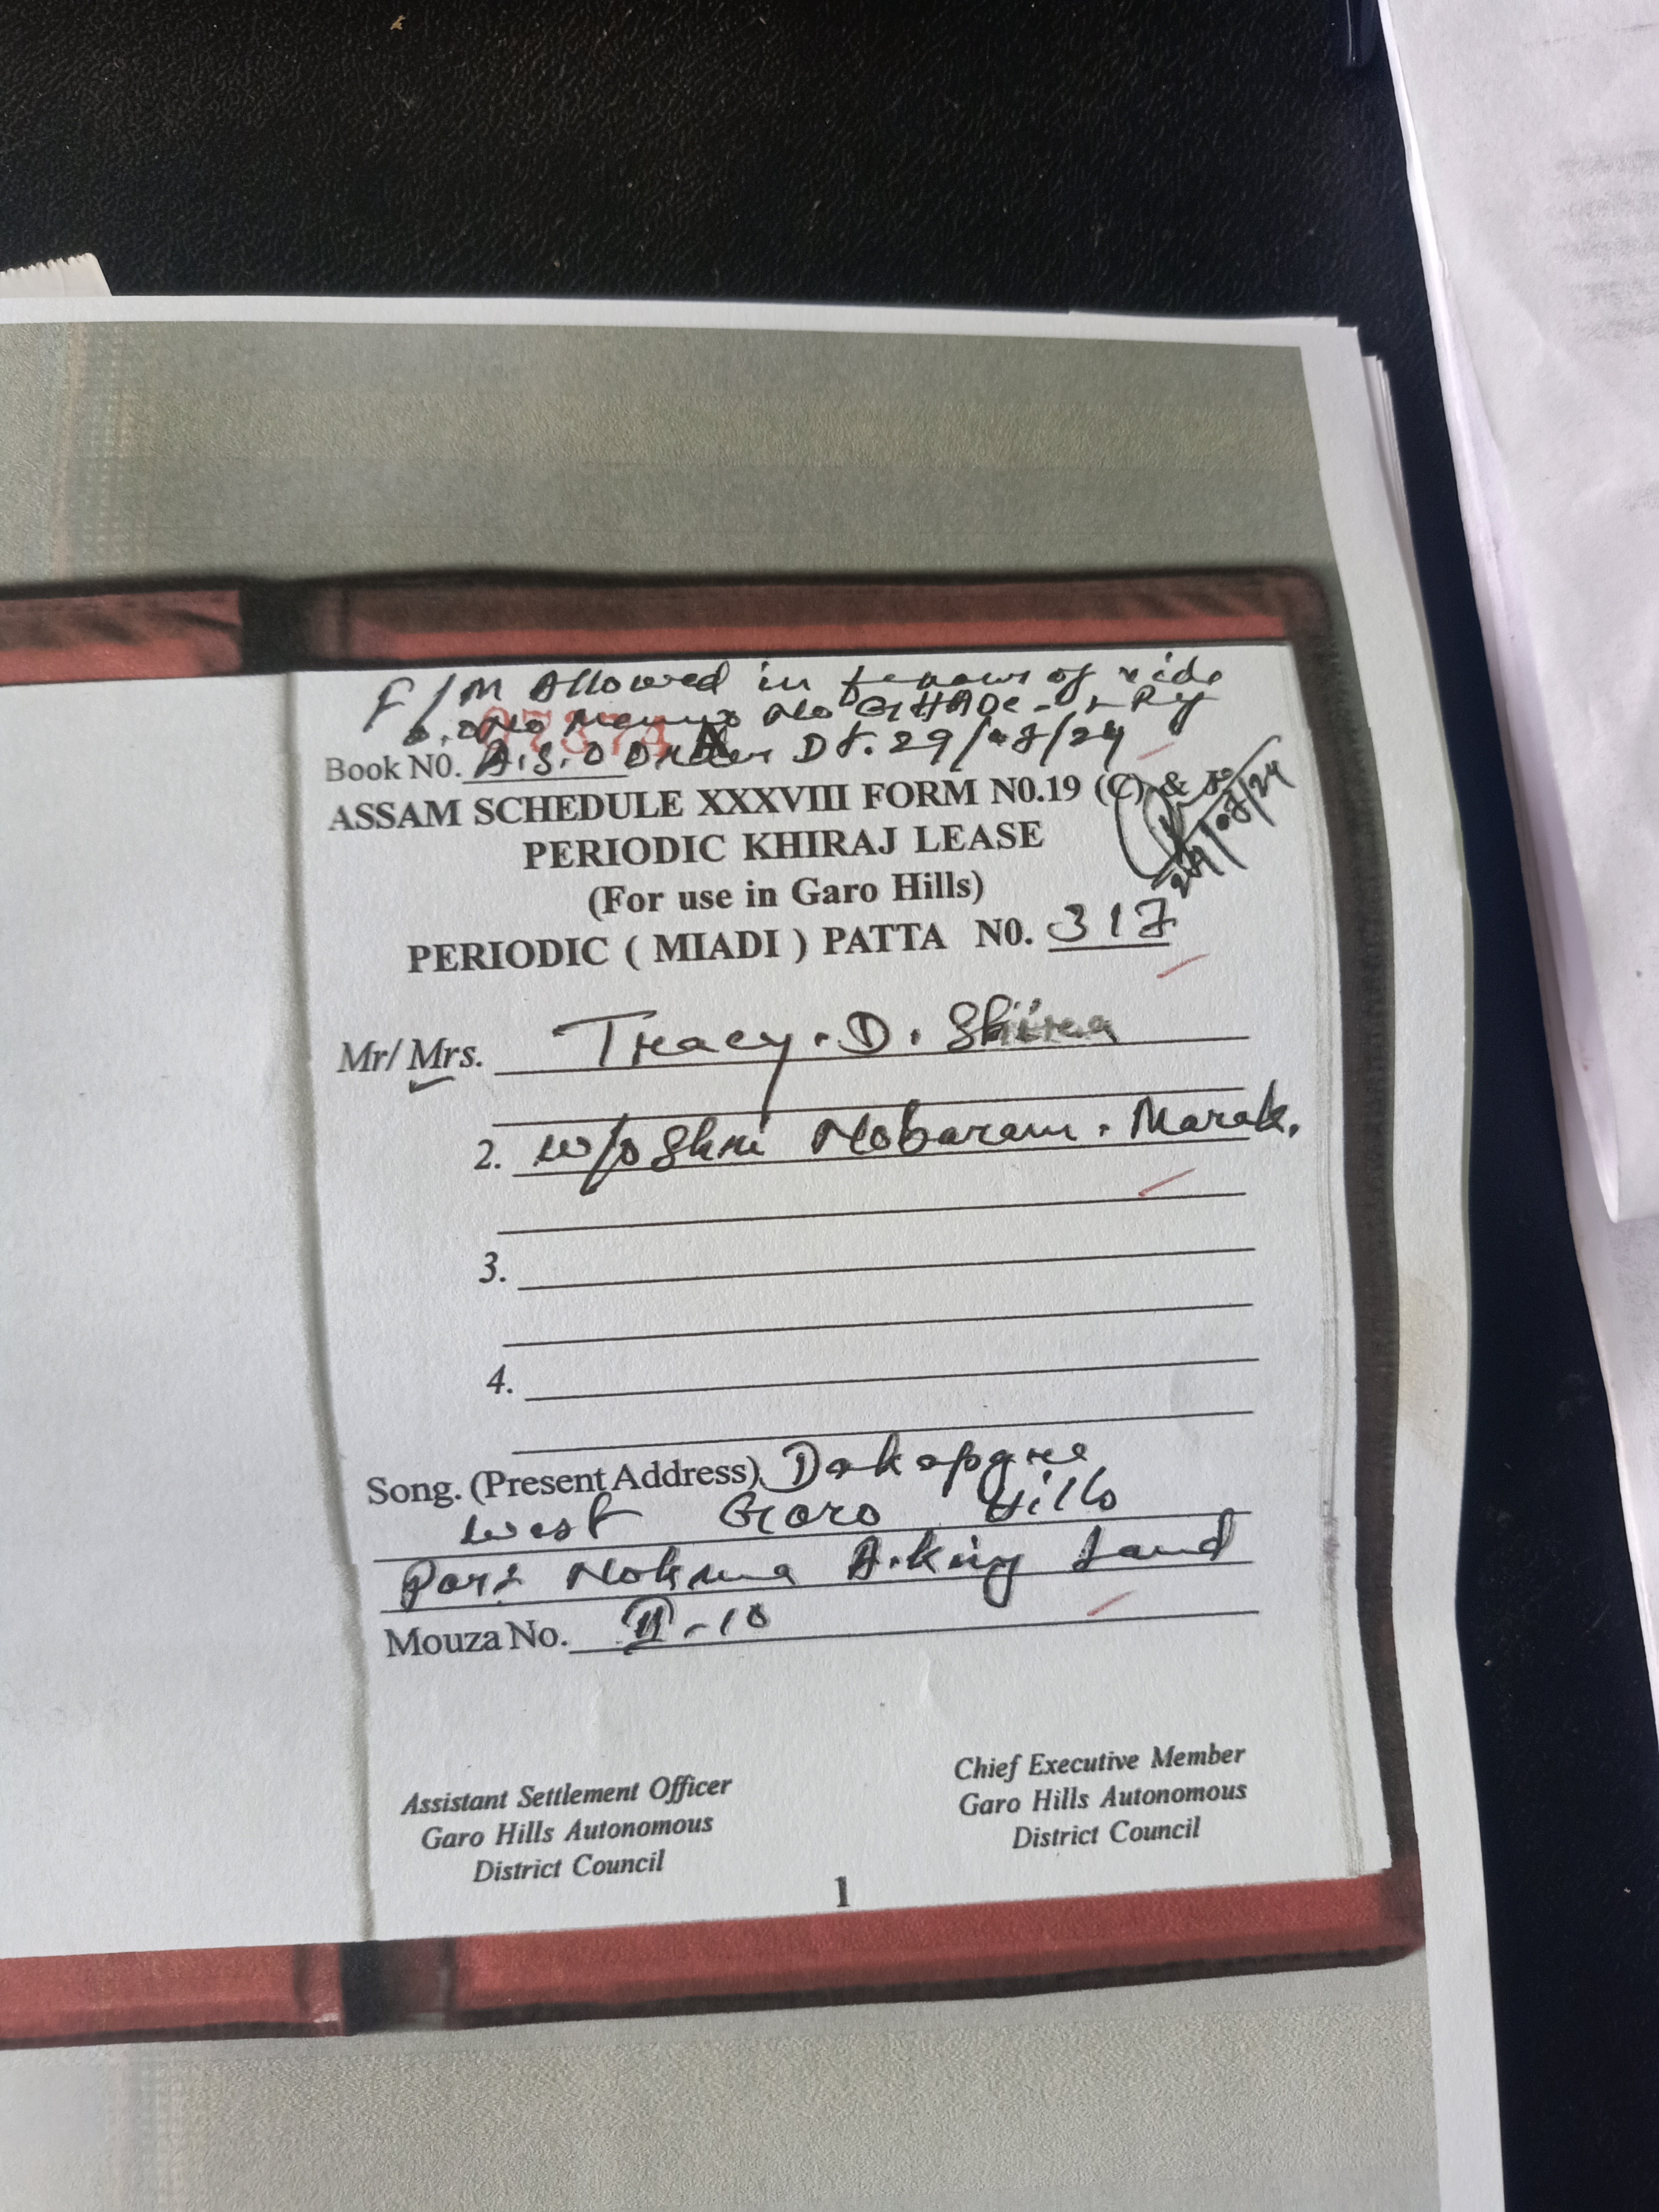 F/M Allowed in favour of vide
No GHADC
Book N0. A.S.O Order Dt. 29/08/24
ASSAM SCHEDULE XXXVIII FORM N0.19 (C) &
29/08/24
PERIODIC KHIRAJ LEASE
(For use in Garo Hills)
PERIODIC ( MIADI ) PATTA N0. 317
Mr/ Mrs. Tracy. D. Shira
2. w/o Shri Nobaram. Marak.
3.
4.
Song. (Present Address) Dakopgre
West Garo Hills
Nokma A.king Land
Mouza No. II-10
Assistant Settlement Officer
Garo Hills Autonomous
District Council
Chief Executive Member
Garo Hills Autonomous
District Council
1